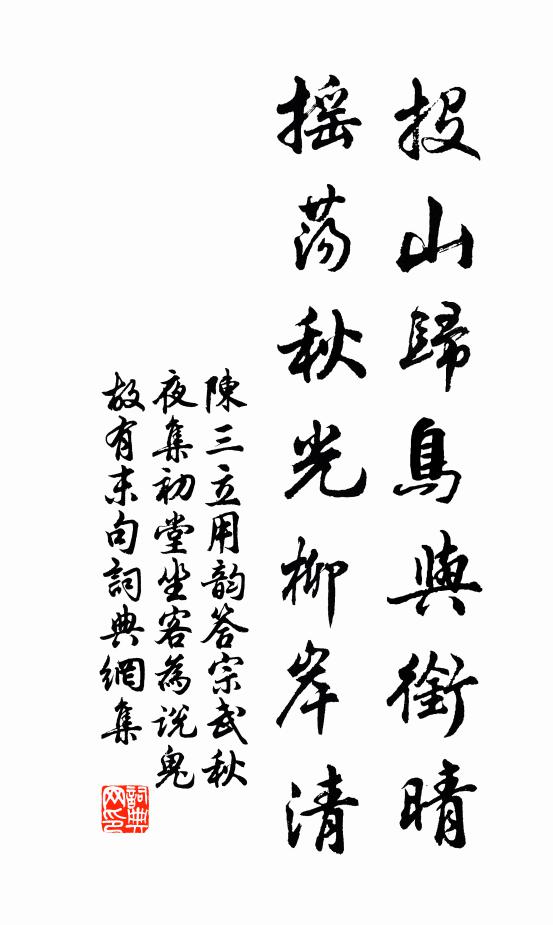 投山歸鳥與銜晴
搖蕩秋光柳岸清
陳三立用韵答宗武秋
夜集初堂坐客為说鬼
故有末句詞典網集
詞典网印